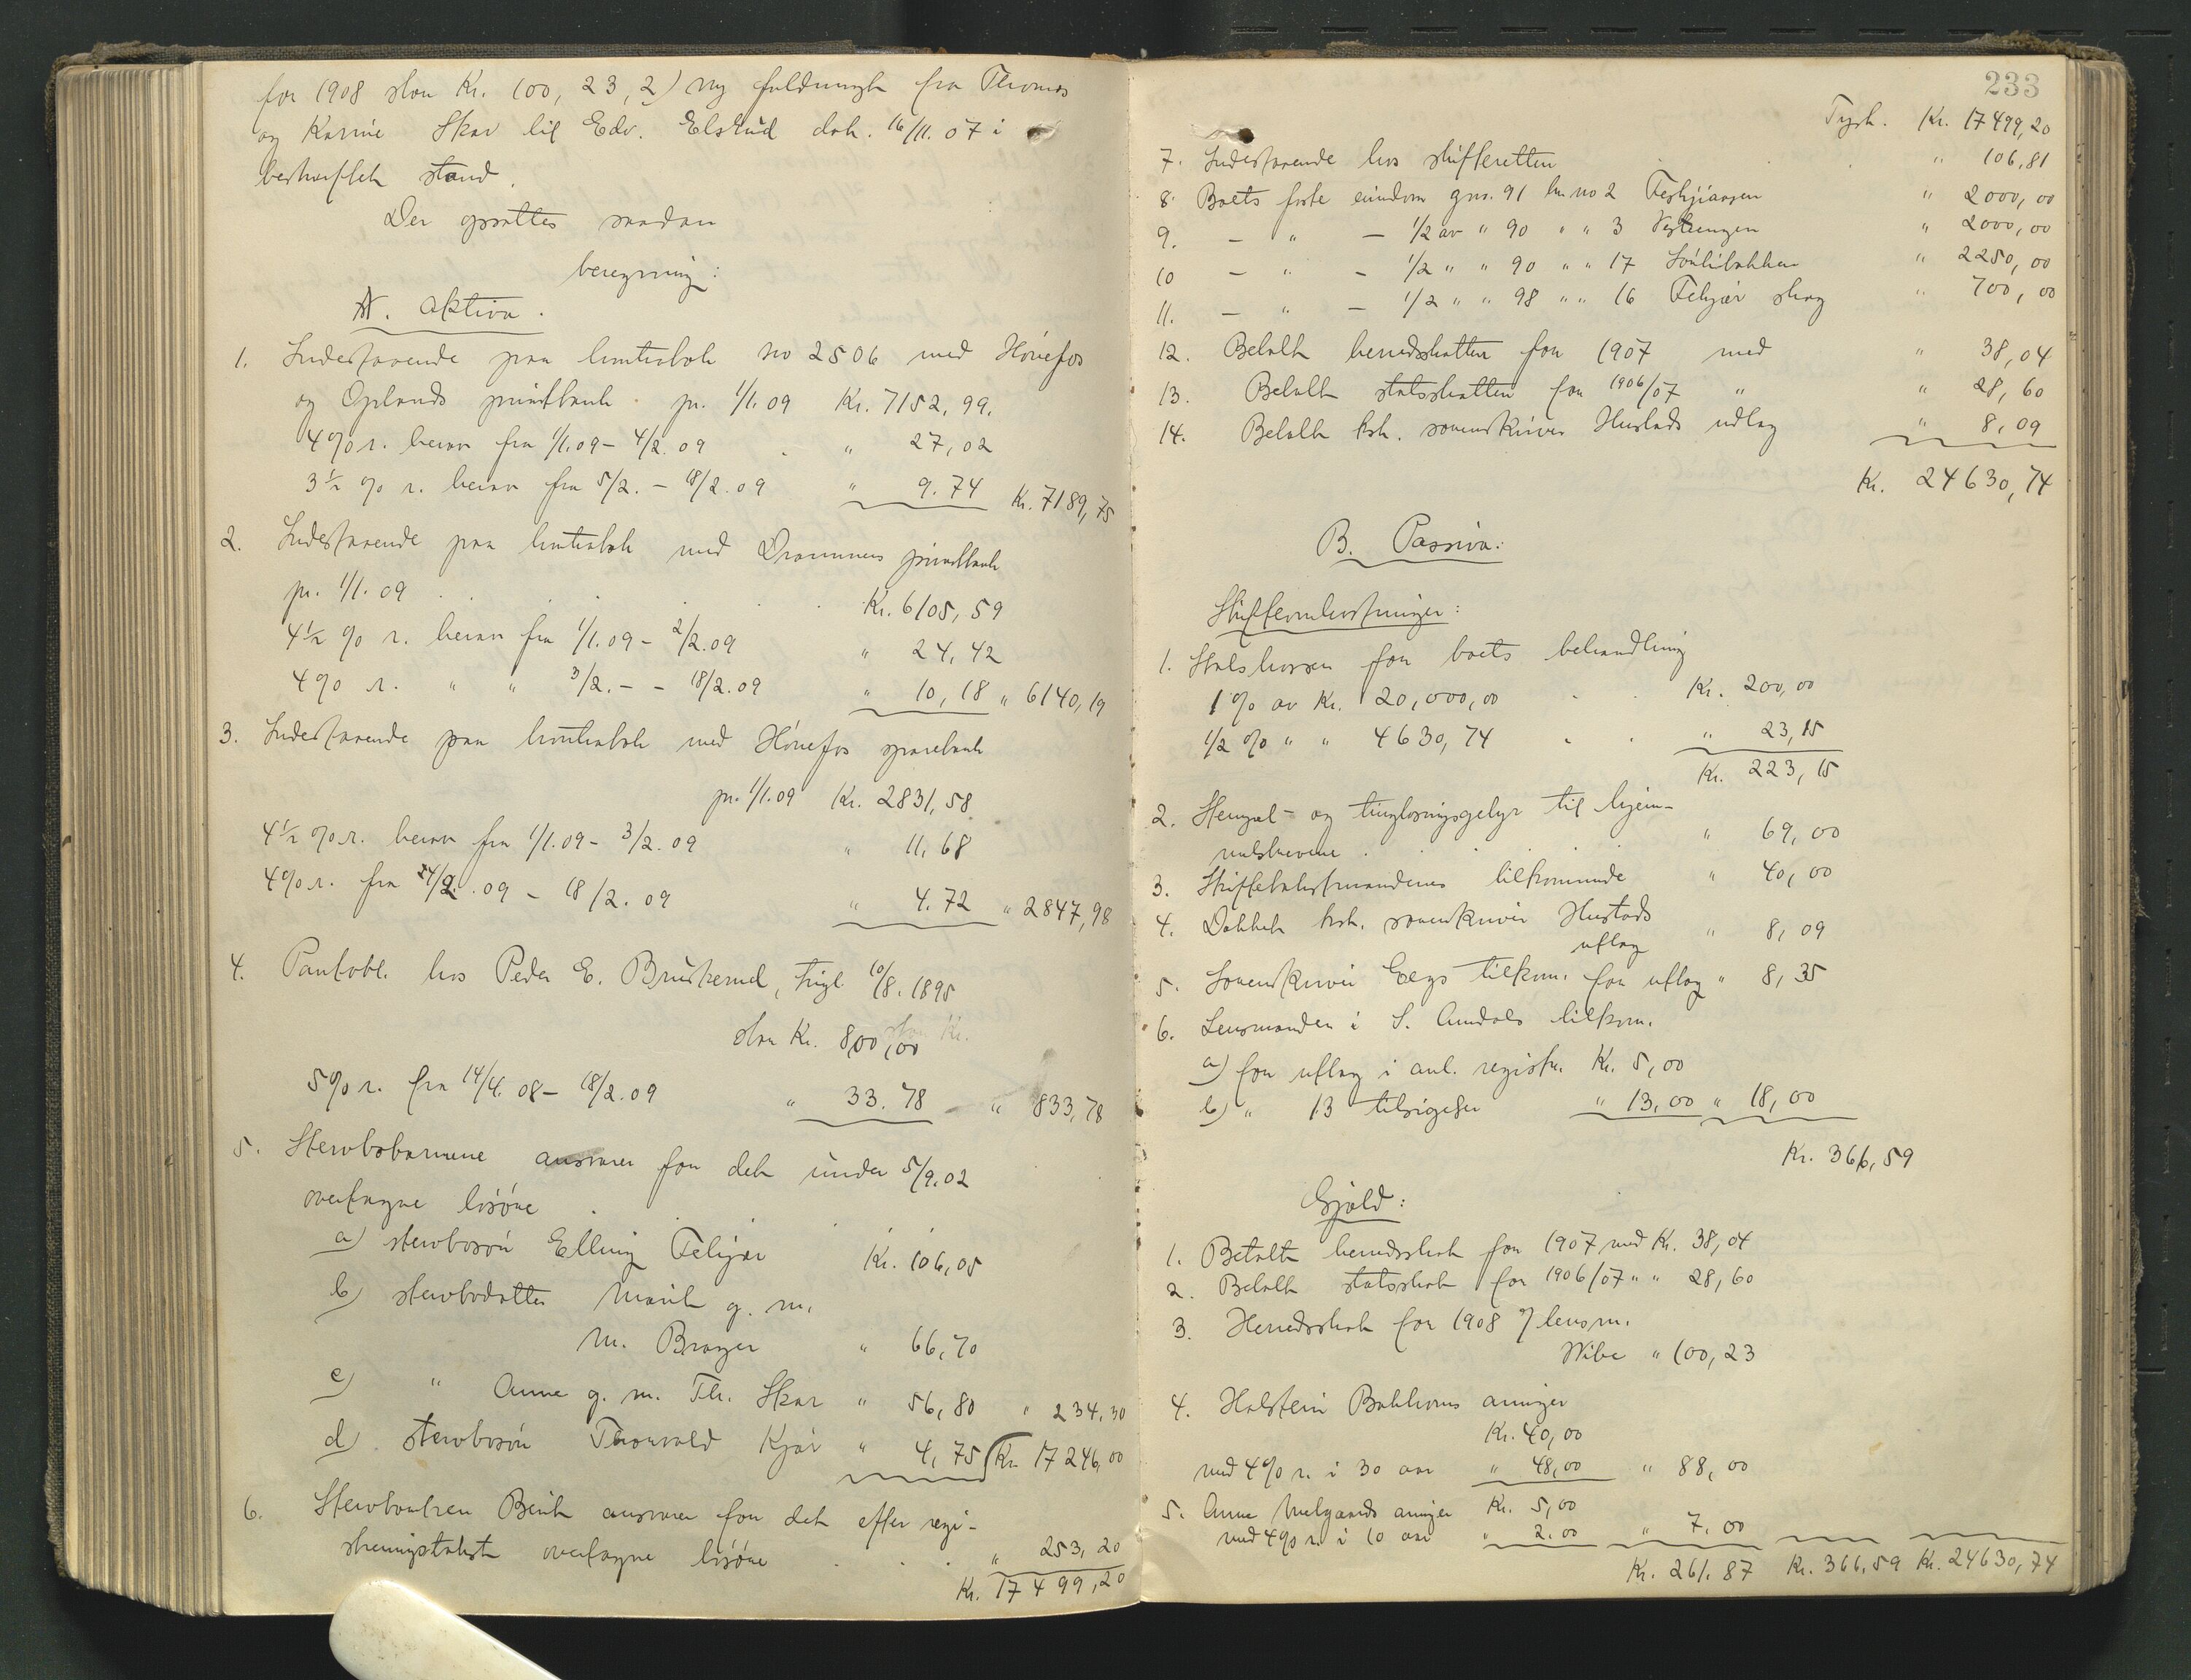 for 1908 stor Kr. 100,23, 2) ny fuldmagt fra Thomas
og Karine Skar til Edv. Elstad dat. 16/11. 07 i
bekræftet stand.
Der opsattes saadan
beregning:
A. Aktiva.
1. Indestaaende paa kontrabok no 2506 med Hönefos
og Oplands privatbank pr. 1/1.09 Kr. 7152,99.
4% r. herav fra 1/1.09 - 4/2.09 " 27,02
3½ % r. herav fra 5/2. - 18/2.09 " 9.74 Kr. 7189,75
2. Indestaaende paa kontrabok med Drammens privatbank
pr. 1/1.09 . . . . Kr. 6105,59
4½ % r. herav fra 1/1.09 - 2/2.09 " 24,42
4% r. " " 3/2. - - 18/2.09 " 10,18 " 6140,19
3. Indestaaende paa kontrabok med Hönefos sparebank
pr. 1/1.09 Kr. 2831,58
4½ % r. herav fra 1/1.09 - 3/2.09 " 11,68
4% r. fra 4/2.09 - 18/2.09 " 4.72 " 2847,98
4. Pantobl. hos Peder E. Bruskerud, tingl. 10/8.1895
stor Kr. 800,00
5% r. fra 14/4.08 - 18/2.09 " 33.78 " 833,78
5. Stervbobarnene ansvarer for det under 5/9.02
overtagne lösöre
a) stervbosön Elling Fekjær Kr. 106,05
b) stervbodatter Marit g. m.
M. Brager " 66,70
c) " Anne g. m. Th. Skar " 56,80 " 234,30
d) stervbosön Thorvald Kjær " 4,75 Kr. 17246,00
6. Stervboenken Berit ansvarer for det efter regi-
streringstakst overtagne lösöre . . . " 253,20
Kr. 17499,20
233
Tpsk. Kr. 17499,20
7. Indestaaende hos skifteretten " 106,81
8. Boets faste eiendom gno. 91 br. no 2 " 2000,00
9. - " - 1/2 av " 90 " " 3 " 2000,00
10 - " - 1/2 " " 90 " " 17 " 2250,00
11. - " - 1/2 " " 98 " " 16 Fekjær skog " 700,00
12. Betalt herredsskatten for 1907 med " 38,04
13. Betalt statsskatten for 1906/07 " " 28,60
14. Betalt fhv. sorenskriver Hustads utlæg " 8,09
Kr. 24630,74
B. Passiva:
Skifteomkostninger:
1. Statskassen for boets behandling
1% av Kr. 20,000,00 . . Kr. 200,00
1/2 % " " 4630,74 . . " 23,15
Kr. 223,15
2. Stempel- og tinglæsningsgebyr til hjem-
melsbrevene . . . " 69,00
3. Skiftetakstmændenes tilkommende " 40,00
4. Dækket fhv. sorenskriver Hustads
utlæg " 8,09
5. Sorenskriver tilkom. for utlæg " 8,35
6. Lensmanden i S. Aurdals tilkom.
a) for utlæg i anl. registr. Kr. 5,00
b) " 13 tilsigelser " 13,00 " 18,00
Kr. 366,59
Gjæld:
1. Betalt herredsskat for 1907 med Kr. 38,04
2. Betalt statsskat for 1906/07 " " 28,60
3. Herredsskat for 1908 v/ lensm.
Wibe " 100,23
4. Halstein Bakkoms arvinger
Kr. 40,00
med 4% r. i 30 aar " 48,00 " 88,00
5. Anne Melgaards arvinger Kr. 5,00
med 4% r. i 10 aar " 2.00 " 7.00
Kr. 261.87 Kr. 366,59 Kr. 24630,74